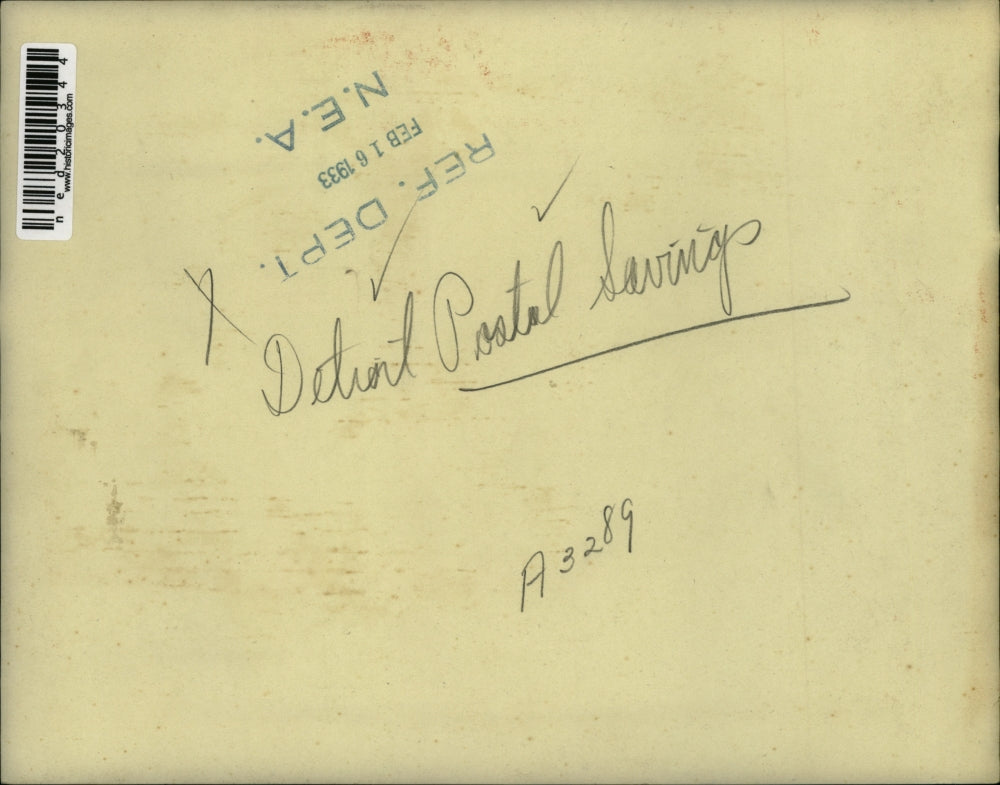 N.E.A.
FEB 16 1933
REF. DEPT.
X
Detroit Postal Savings
A3289
ned20344
www.historicimages.com